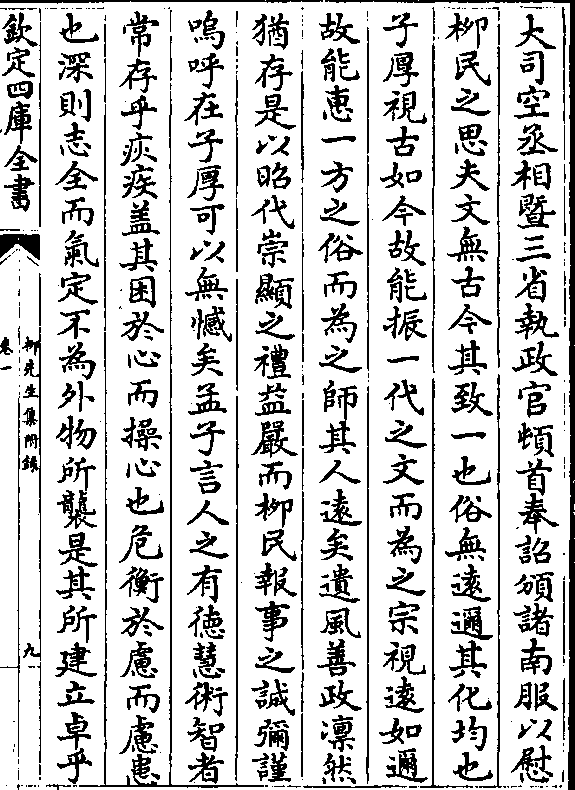 大司空丞相暨三省執政官頓首奉詔頒諸南服以慰
柳民之思夫文無古今其致一也俗無逺邇其化均也
子厚視古如今故能振一代之文而為之宗視逺如邇
故能恵一方之俗而為之師其人逺矣遺風善政凛然
猶存是以昭代崇顯之禮益嚴而柳民報事之誠彌謹
嗚呼在子厚可以無憾矣孟子言人之有徳慧術智者
常存乎疢疾盖其困於心而操心也危衡於慮而慮患
也深則志全而氣定不為外物所襲是其所建立卓乎
欽定四庫全書
柳先生集附錄
卷一
九